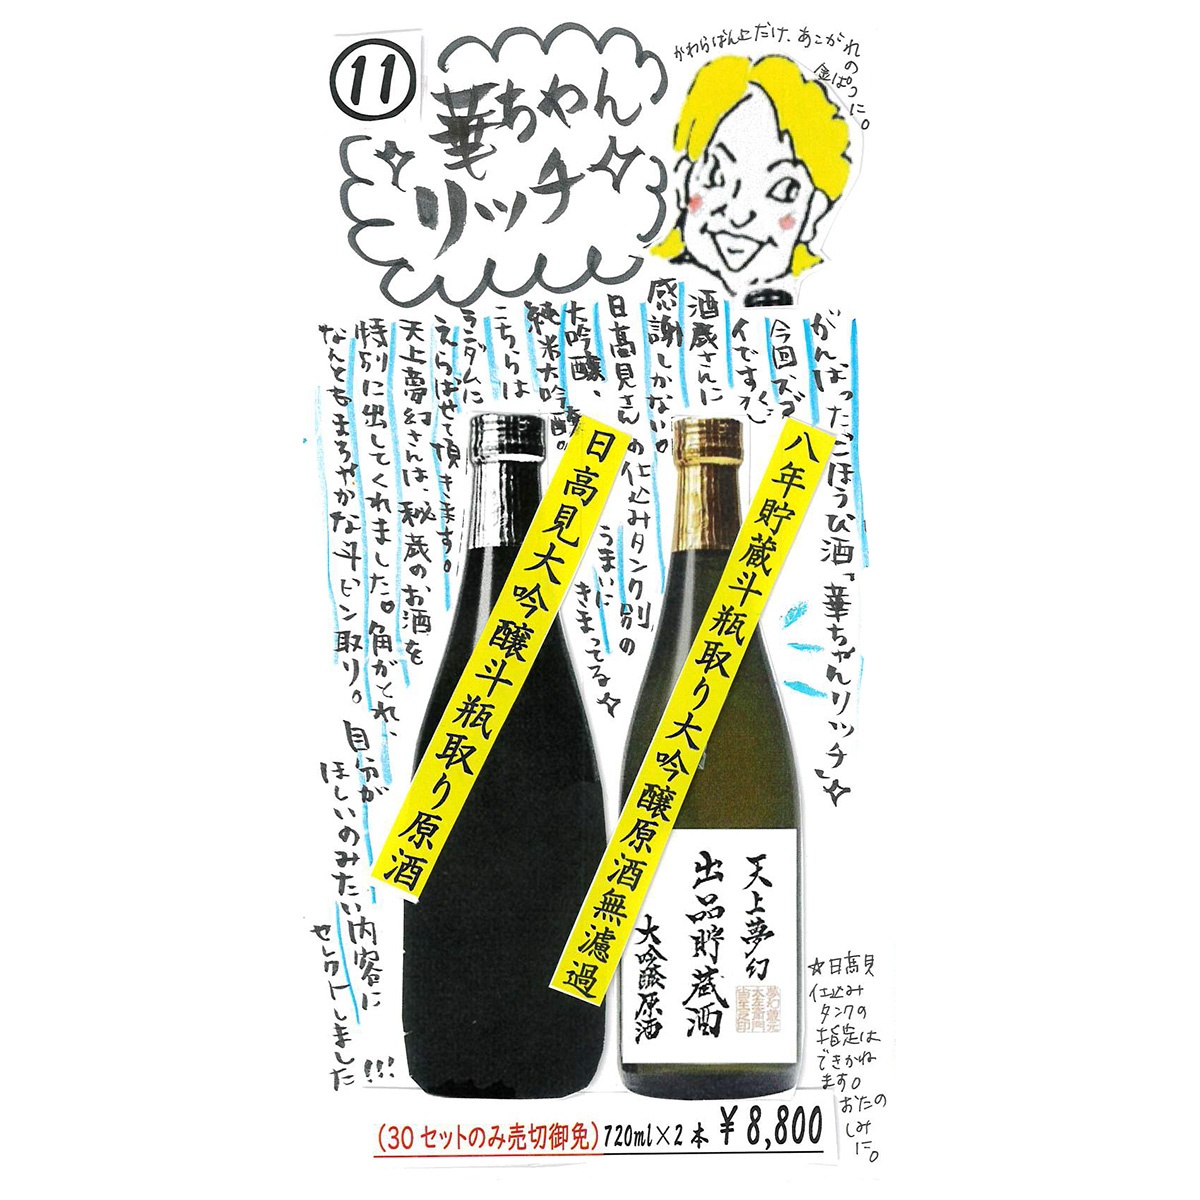 11
華ちゃん
リッチ
かわらばん上だけ、あこがれ
の
金ぱつ
に。
がんばったごほうび酒「華ちゃんリッチ」
今回、スゴ
イですよ
酒蔵さんに
感謝しかない。
日高見さんの仕込みタンク別の
大吟醸、うまいに
純米大吟醸。きまってる
こちらは
ランダムに
えらばせて頂きます。
天上夢幻さんは、秘蔵のお酒を
特別に出してくれました。角がとれ、
なんともまろやかな斗ビン取り。
自分が
ほしいのみたい内容に
セレクトしました!!!
日高見大吟醸斗瓶取り原酒
八年貯蔵斗瓶取り大吟醸原酒無濾過
天上夢幻
出品貯蔵酒
大吟醸原酒
☆日高見
仕込み
タンクの
指定は
できかね
ます。
おたの
しみ
に。
(30セットのみ売切御免)720ml×2本 ¥8,800